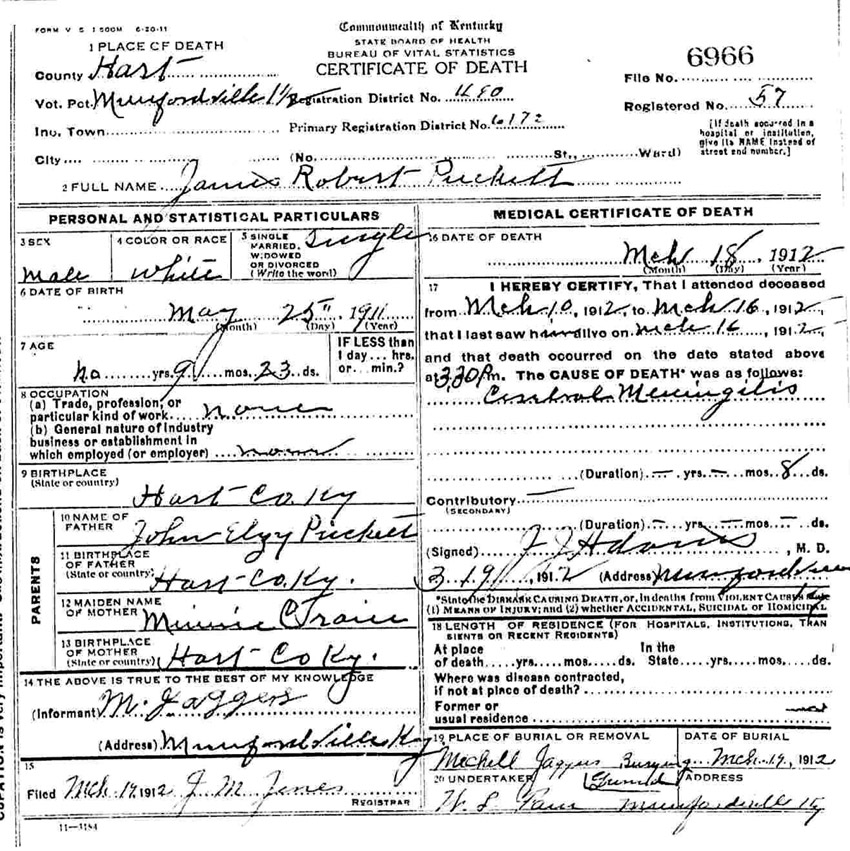 FORM V S 1 500M 6-20-11
Commonwealth of Kentucky
STATE BOARD OF HEALTH
BUREAU OF VITAL STATISTICS
CERTIFICATE OF DEATH
1 PLACE OF DEATH
County Hart
Vot. Pct. Munfordville
Inc. Town
City (No. St., Ward)
Registration District No. 480
Primary Registration District No. 6172
6966
File No.
Registered No. 57
[If death occurred in a hospital or institution, give its NAME instead of street and number.]
2 FULL NAME James Robert Puckett
PERSONAL AND STATISTICAL PARTICULARS
3 SEX
Male
4 COLOR OR RACE
White
5 SINGLE MARRIED, WIDOWED OR DIVORCED (Write the word) Single
6 DATE OF BIRTH
May 25" 1911
(Month) (Day) (Year)
7 AGE
no yrs. 9 mos. 23 ds.
IF LESS than
1 day ... hrs.
or ... min.?
8 OCCUPATION
(a) Trade, profession, or
particular kind of work none
(b) General nature of Industry
business or establishment in
which employed (or employer) none
9 BIRTHPLACE
(State or country)
Hart Co. Ky
PARENTS
10 NAME OF FATHER
John Elzy Puckett
11 BIRTHPLACE OF FATHER
(State or country)
Hart Co. Ky.
12 MAIDEN NAME OF MOTHER
Minnie C
13 BIRTHPLACE OF MOTHER
(State or country) Hart Co Ky.
14 THE ABOVE IS TRUE TO THE BEST OF MY KNOWLEDGE
(Informant) M. Jaggers
(Address) Munfordville Ky
15
Filed Mch 19 1912 J M Jones
REGISTRAR
11-3184
MEDICAL CERTIFICATE OF DEATH
16 DATE OF DEATH
Mch 18, 1912
(Month) (Day) (Year)
17 I HEREBY CERTIFY, That I attended deceased
from Mch 10, 1912, to Mch 16, 1912,
that I last saw him alive on Mch 16, 1912,
and that death occurred on the date stated above
at 3,30 Pm. The CAUSE OF DEATH* was as follows:
Meningitis
(Duration) — yrs. — mos. 8 ds.
Contributory —
(SECONDARY)
(Duration) — yrs. — mos. — ds.
(Signed) J J Adams, M. D.
3-19, 1912 (Address) Munfordville
*State the DISEASE CAUSING DEATH, or, in deaths from VIOLENT CAUSES state
(1) MEANS OF INJURY; and (2) whether ACCIDENTAL, SUICIDAL OR HOMICIDAL
18 LENGTH OF RESIDENCE (FOR HOSPITALS, INSTITUTIONS, TRAN
SIENTS OR RECENT RESIDENTS)
At place
of death yrs. mos. ds.
In the
State yrs. mos. ds.
Where was disease contracted,
if not at place of death?
Former or
usual residence
19 PLACE OF BURIAL OR REMOVAL
Jaggers Burying Ground
DATE OF BURIAL
Mch. 19, 1912
20 UNDERTAKER
ADDRESS
Munfordville Ky